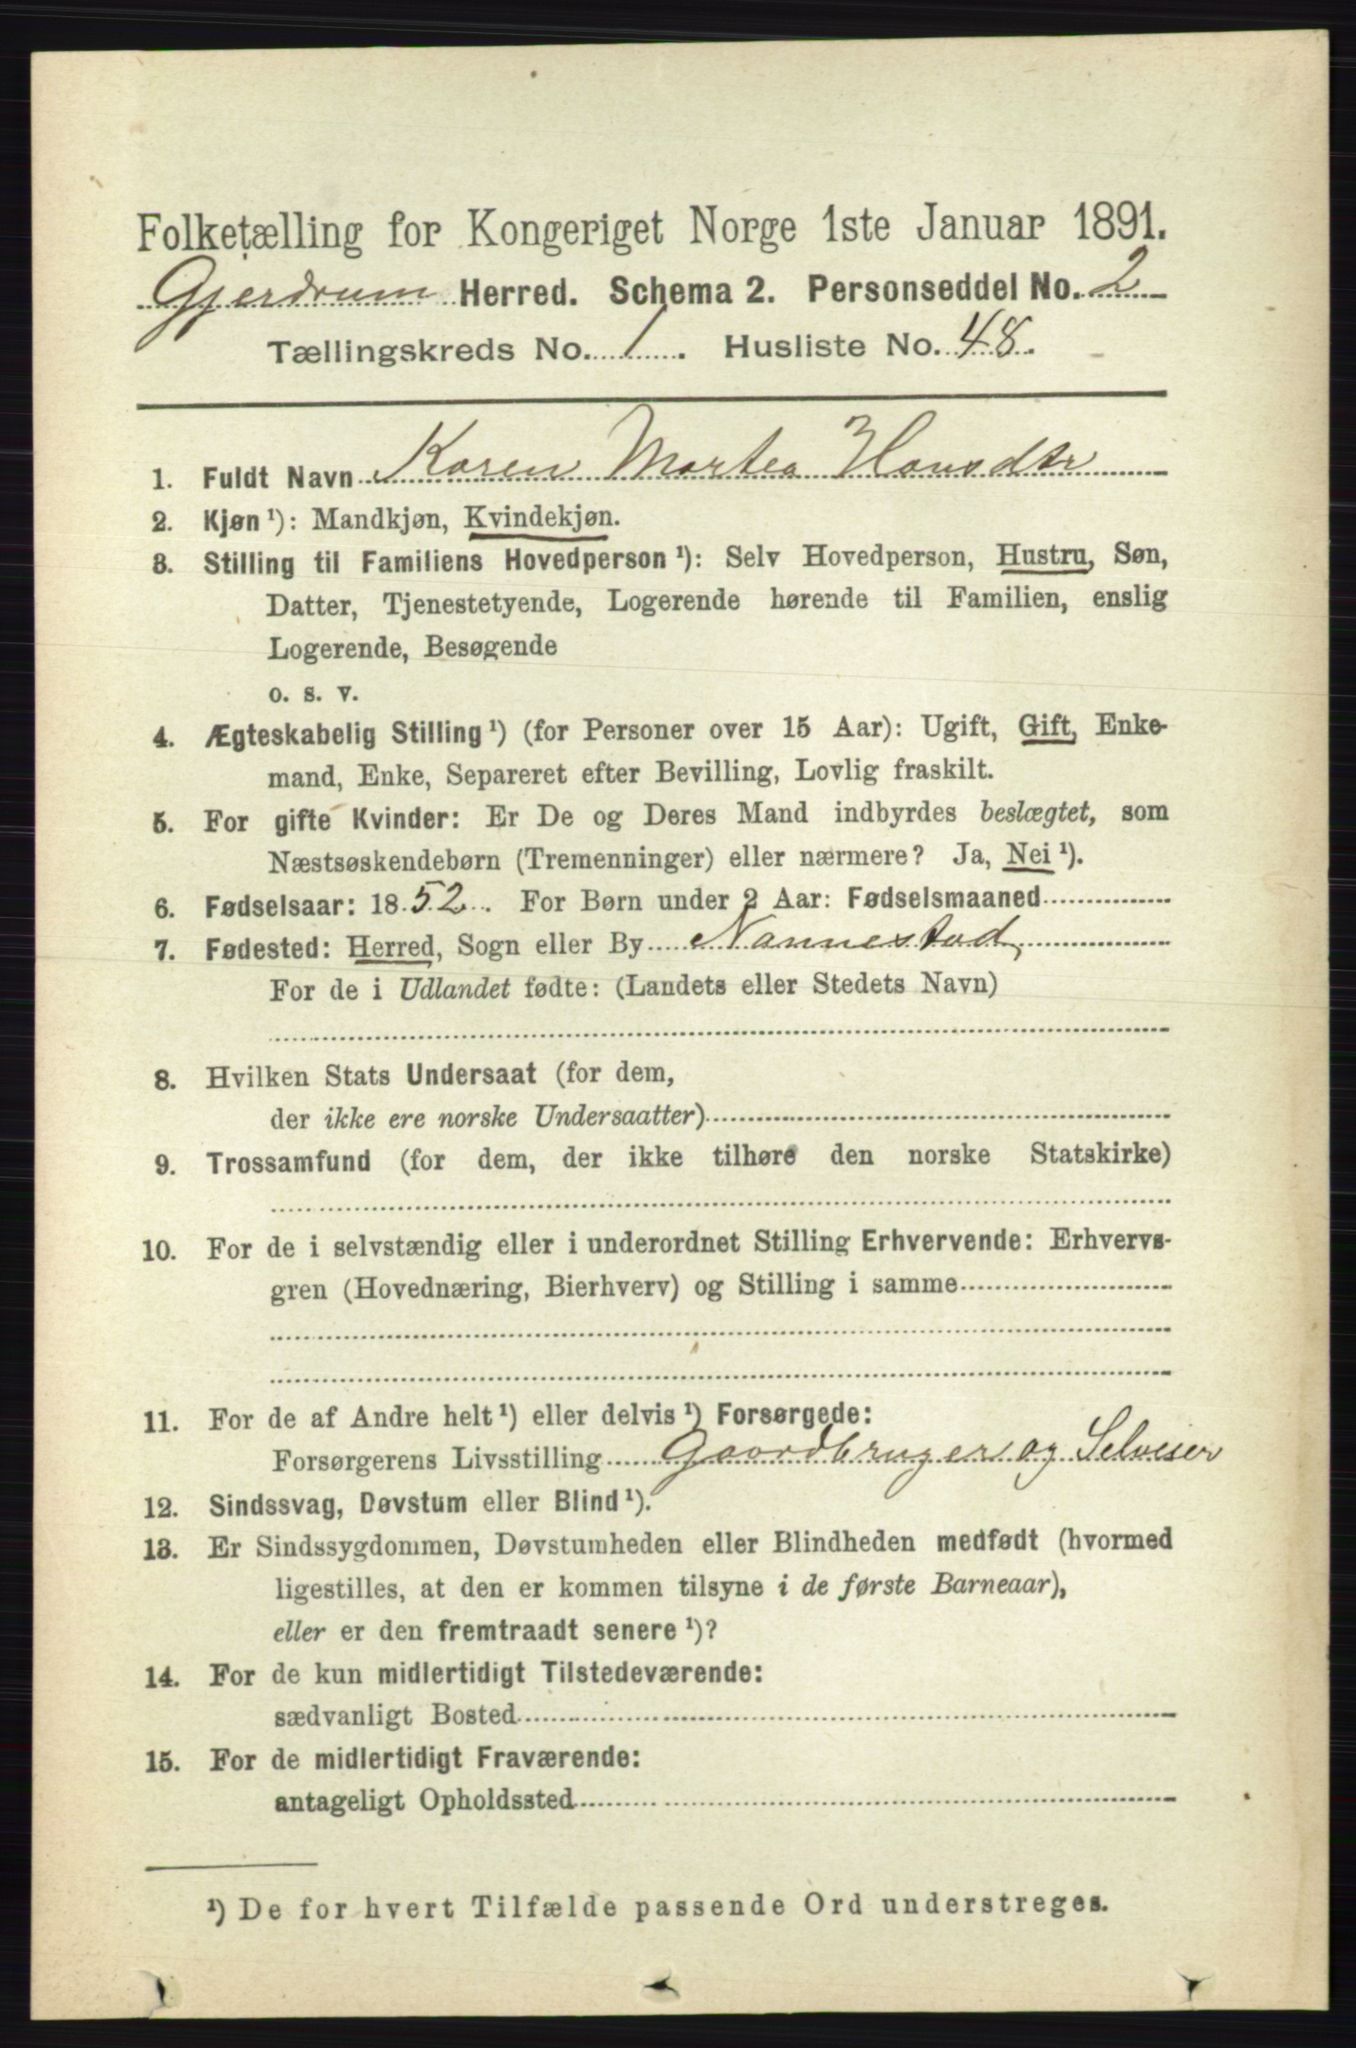 Folketælling for Kongeriget Norge 1ste Januar 1891.
Gjerdrum Herred. Schema 2. Personseddel No. 2
Tællingskreds No. 1. Husliste No. 48.
1. Fuldt Navn Karen Martea Hansdtr
2. Kjøn ¹): Mandkjøn, Kvindekjøn.
3. Stilling til Familiens Hovedperson ¹): Selv Hovedperson, Hustru, Søn,
Datter, Tjenestetyende, Logerende hørende til Familien, enslig
Logerende, Besøgende
o. s. v.
4. Ægteskabelig Stilling ¹) (for Personer over 15 Aar): Ugift, Gift, Enke-
mand, Enke, Separeret efter Bevilling, Lovlig fraskilt.
5. For gifte Kvinder: Er De og Deres Mand indbyrdes beslægtet, som
Næstsøskendebørn (Tremenninger) eller nærmere? Ja, Nei ¹).
6. Fødselsaar: 1852. For Børn under 2 Aar: Fødselsmaaned
7. Fødested: Herred, Sogn eller By Nannestad,
For de i Udlandet fødte: (Landets eller Stedets Navn)
8. Hvilken Stats Undersaat (for dem,
der ikke ere norske Undersaatter)
9. Trossamfund (for dem, der ikke tilhøre den norske Statskirke)
10. For de i selvstændig eller i underordnet Stilling Erhvervende: Erhvervs-
gren (Hovednæring, Bierhverv) og Stilling i samme
11. For de af Andre helt ¹) eller delvis ¹) Forsørgede:
Forsørgerens Livsstilling Gaardbruger og Selveier
12. Sindssvag, Døvstum eller Blind ¹).
13. Er Sindssygdommen, Døvstumheden eller Blindheden medfødt (hvormed
ligestilles, at den er kommen tilsyne i de første Barneaar),
eller er den fremtraadt senere ¹)?
14. For de kun midlertidigt Tilstedeværende:
sædvanligt Bosted
15. For de midlertidigt Fraværende:
antageligt Opholdssted
¹) De for hvert Tilfælde passende Ord understreges.